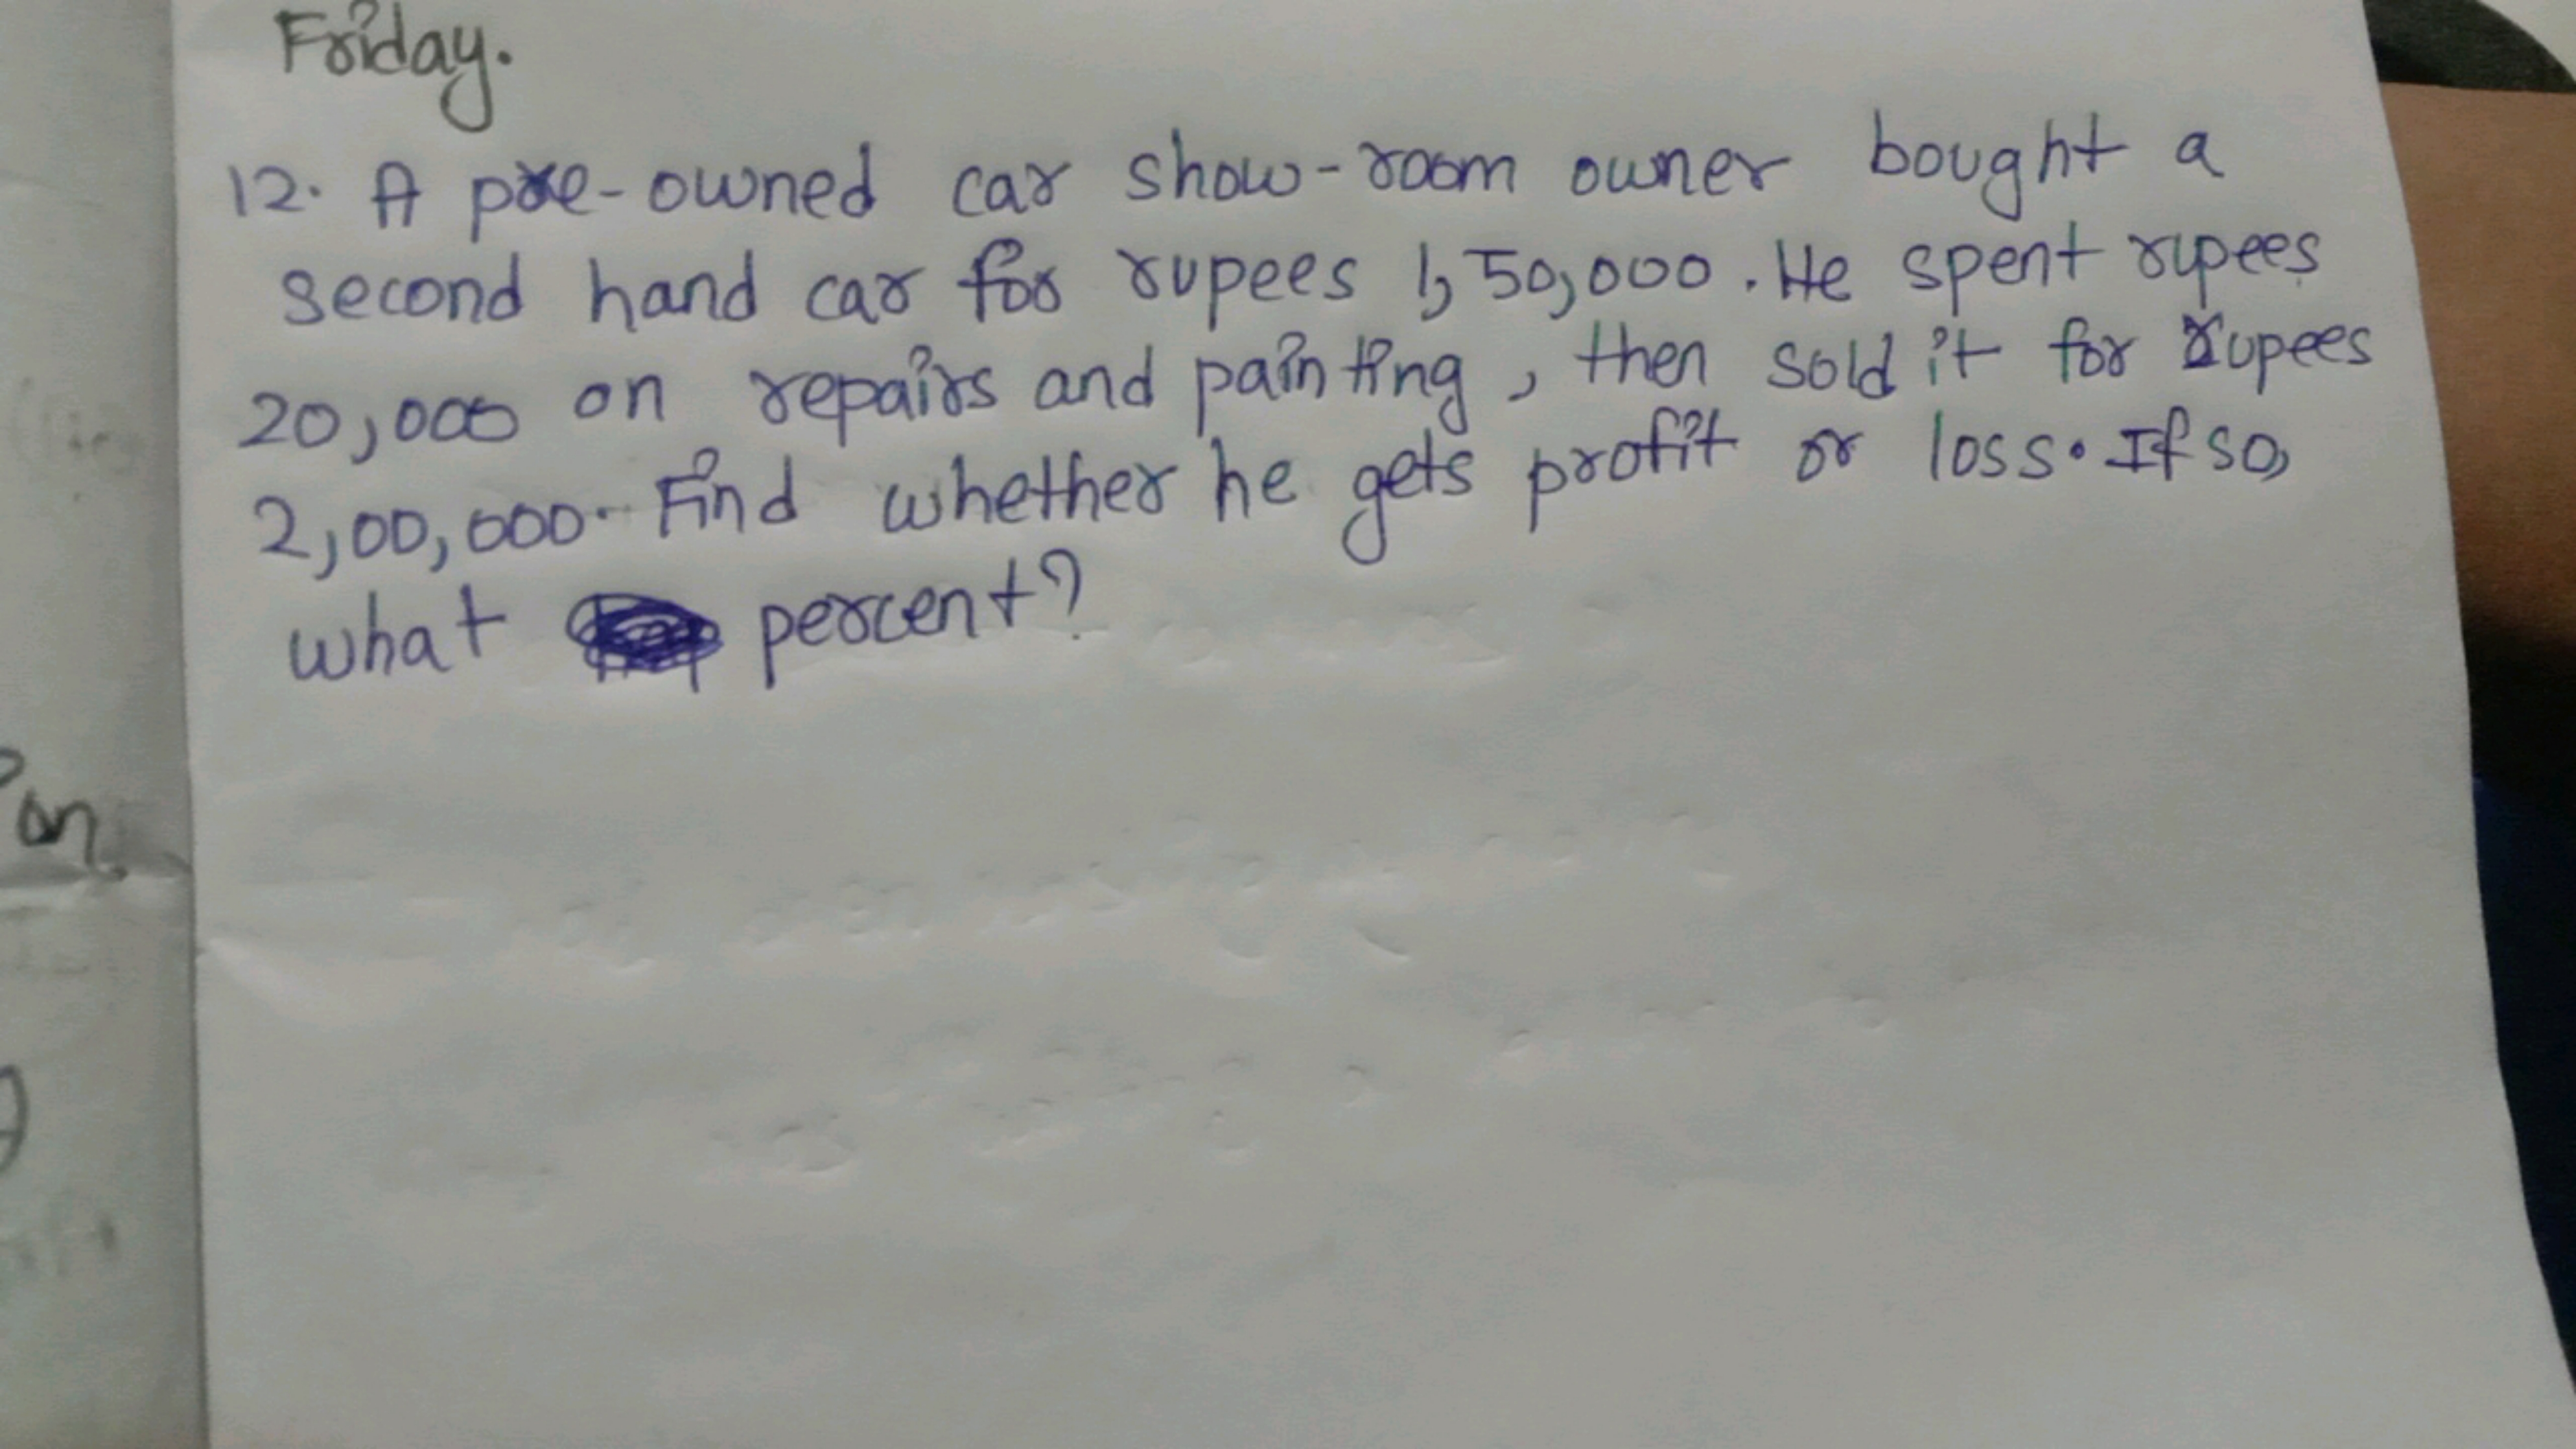 Friday.
12. A pre-owned car show-room owner bought a
second hand car for rupees 1,50,000. He spent rupees
20,000 on repairs and painting, then sold it for rupees
2,00,000. Find whether he gets profit or loss. If so,
what percent?